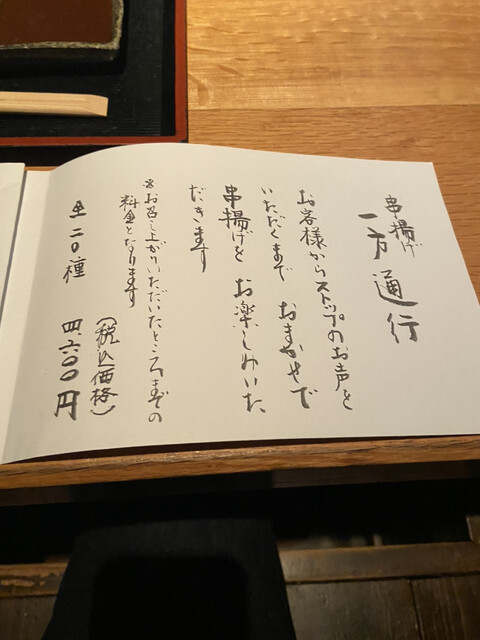 串揚げ
一方通行
お客様からストップのお声を
いただくまで おまかせで
串揚げを お楽しみいた
だきます
※お召し上がりいただいたところまでの
料金となります
全二十種 四、六〇〇円
(税込価格)